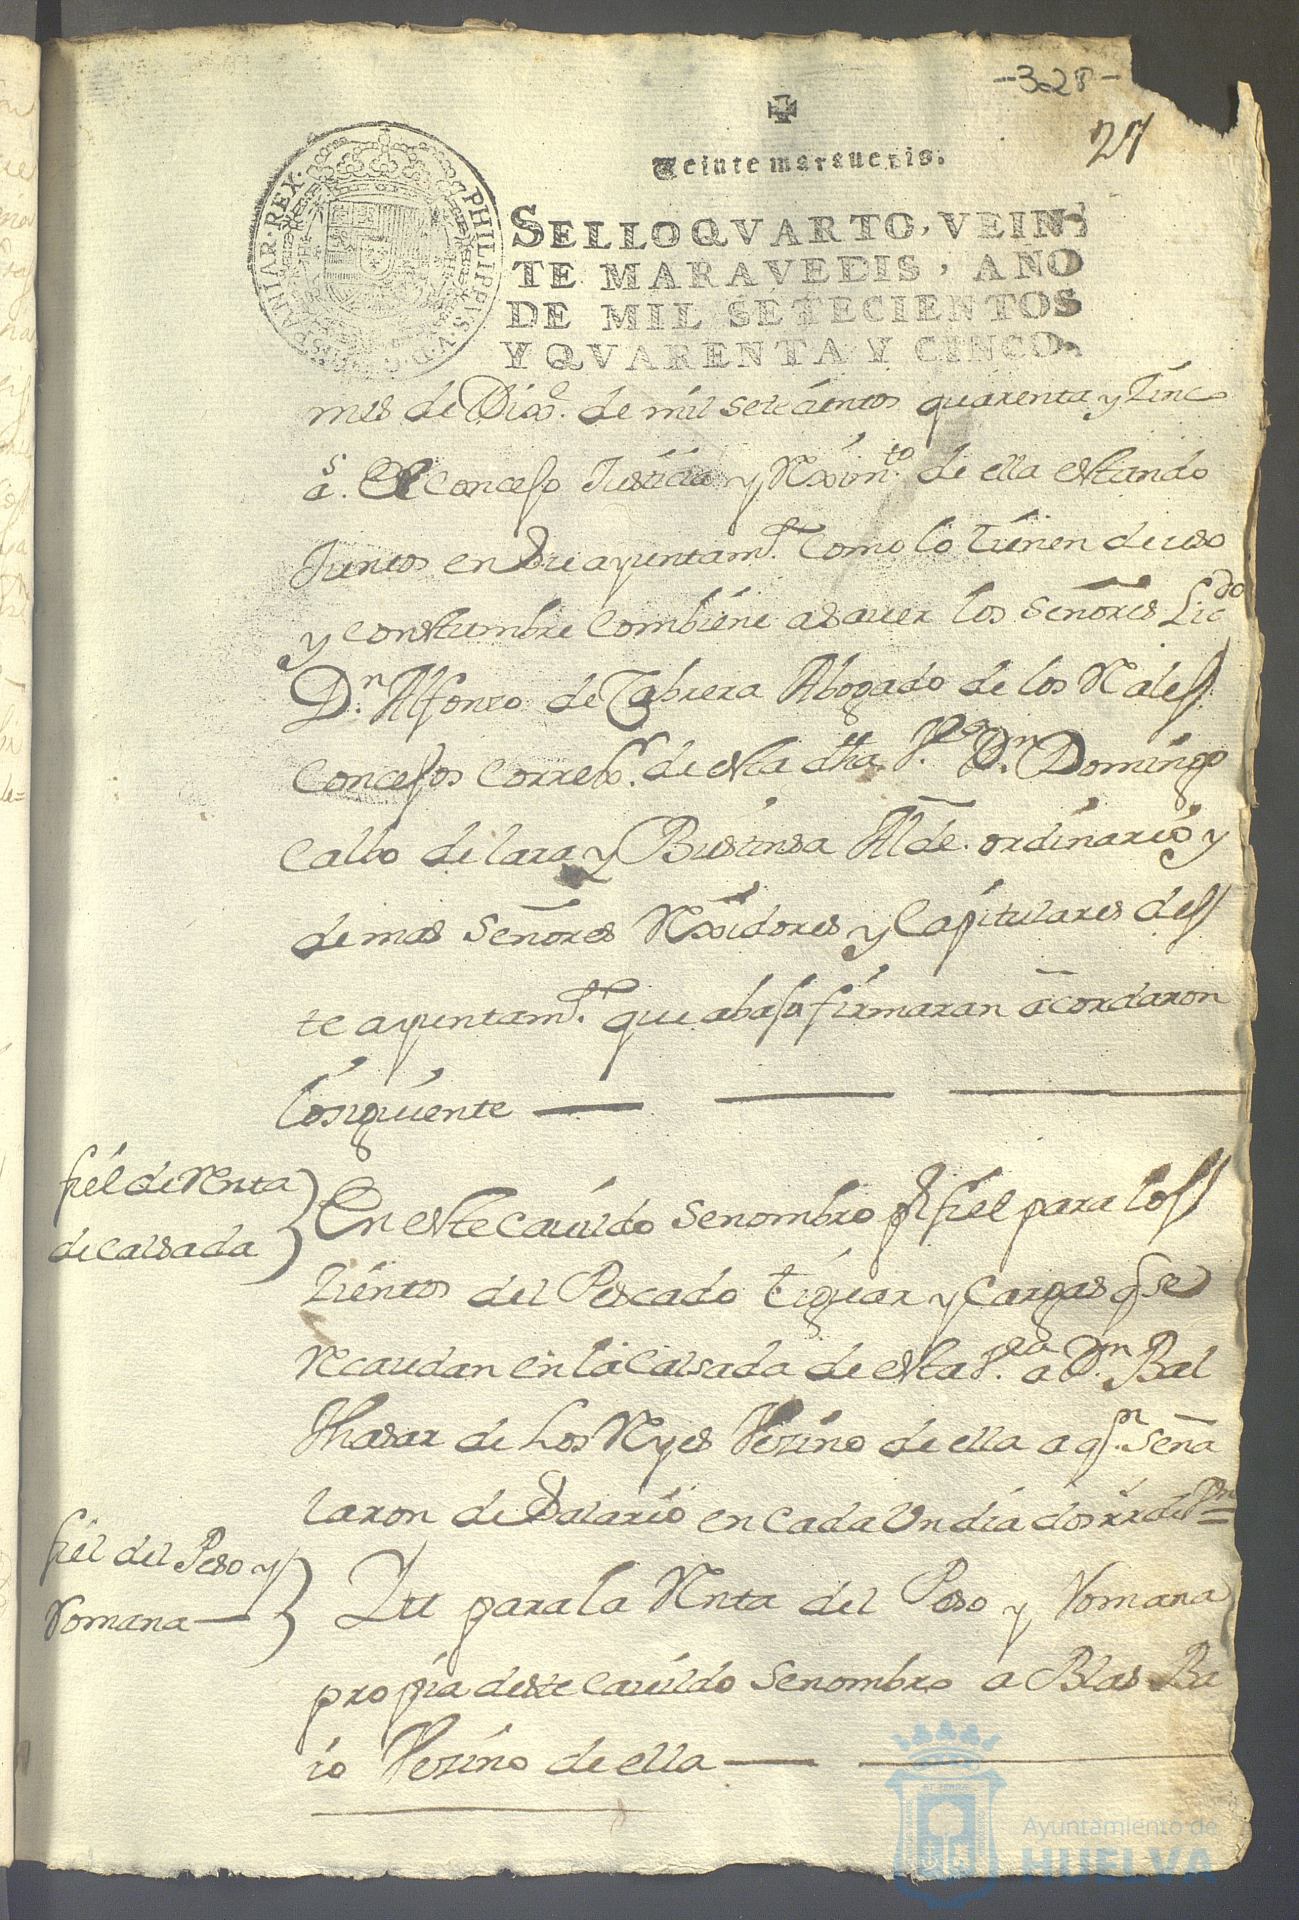 -328-
27
Veinte marauedis.
PHILIPPVS·V·D·G· HISPANIAR·REX·
SELLO QVARTO, VEIN-
TE MARAVEDIS, AÑO
DE MIL SETECIENTOS
Y QVARENTA Y CINCO.
mes de Dize. de mil setecientos quarenta y Sinc
as. El Concejo Justicia y Reximto. de ella estando
Juntos en su ayuntamto. Como lo tienen de uso
y Constumbre Combiene asauer los señores Licdo
Dn. Alfonso de Cabrera Abogado de los Rales
Concejos Correxr. de esta dha Va. Dn. Domingo
Calbo de lara y Bustinsa Alde. ordinario y
demas señores Rexidores y Capitulares des
te ayuntamto. que abajo firmaran acordaron
losiguiente
fiel de Renta
de calsada
En este cauildo senombro pr. fiel para los
Sientos del Pescado tiguar y Cargas q se
Recaudan en la Calsada de esta Va. a Dn. Bal
thasar de Los Reyes Vezino de ella a qn. seña
laron de Salario en cada Un dia dos rr de Vn =
fiel del Peso y
Romana
Itt para la Renta del Peso y Romana
propia deste cauildo senombro a Blas Ba
io Vezino de ella
Ayuntamiento de
HUELVA